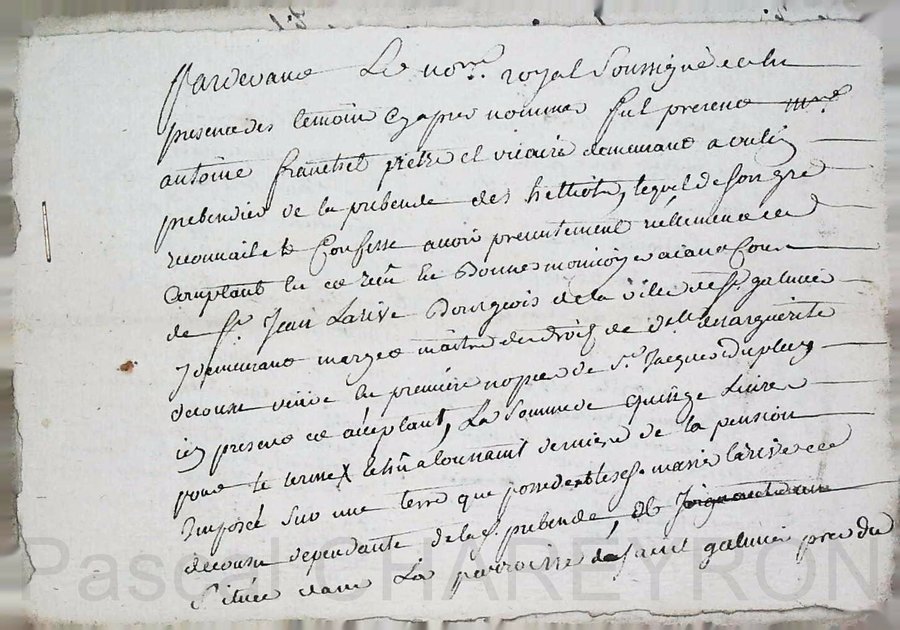 Pardevant Le no.re royal Soussigné et en
presence des temoins cy apres nommés fut present m.re
antoine franchet prêtre et vicaire demeurant a
prebendier de la prebende des helliots, lequel de son gré
reconnait et Confesse avoir presentement réellement et
Comptant en Bonnes monnoyes aiant Cour
de S.r Jean Larive Bourgeois de la ville de S.t galmier
y demeurant marié maitre des droits de d.lle marguerite
decouse veuve en premiere nopces de S.r Jacques Dupuy
icy present et acceptant, La Somme de quinze Livres
pour le terme echu a la toussaint derniere de la pension
Imposée Sur une terre que possedent les marié larive et
decouse dependante de la d. prebende, et
Située dans La parroisse de Saint galmier pres du
Pascal CHAREYRON